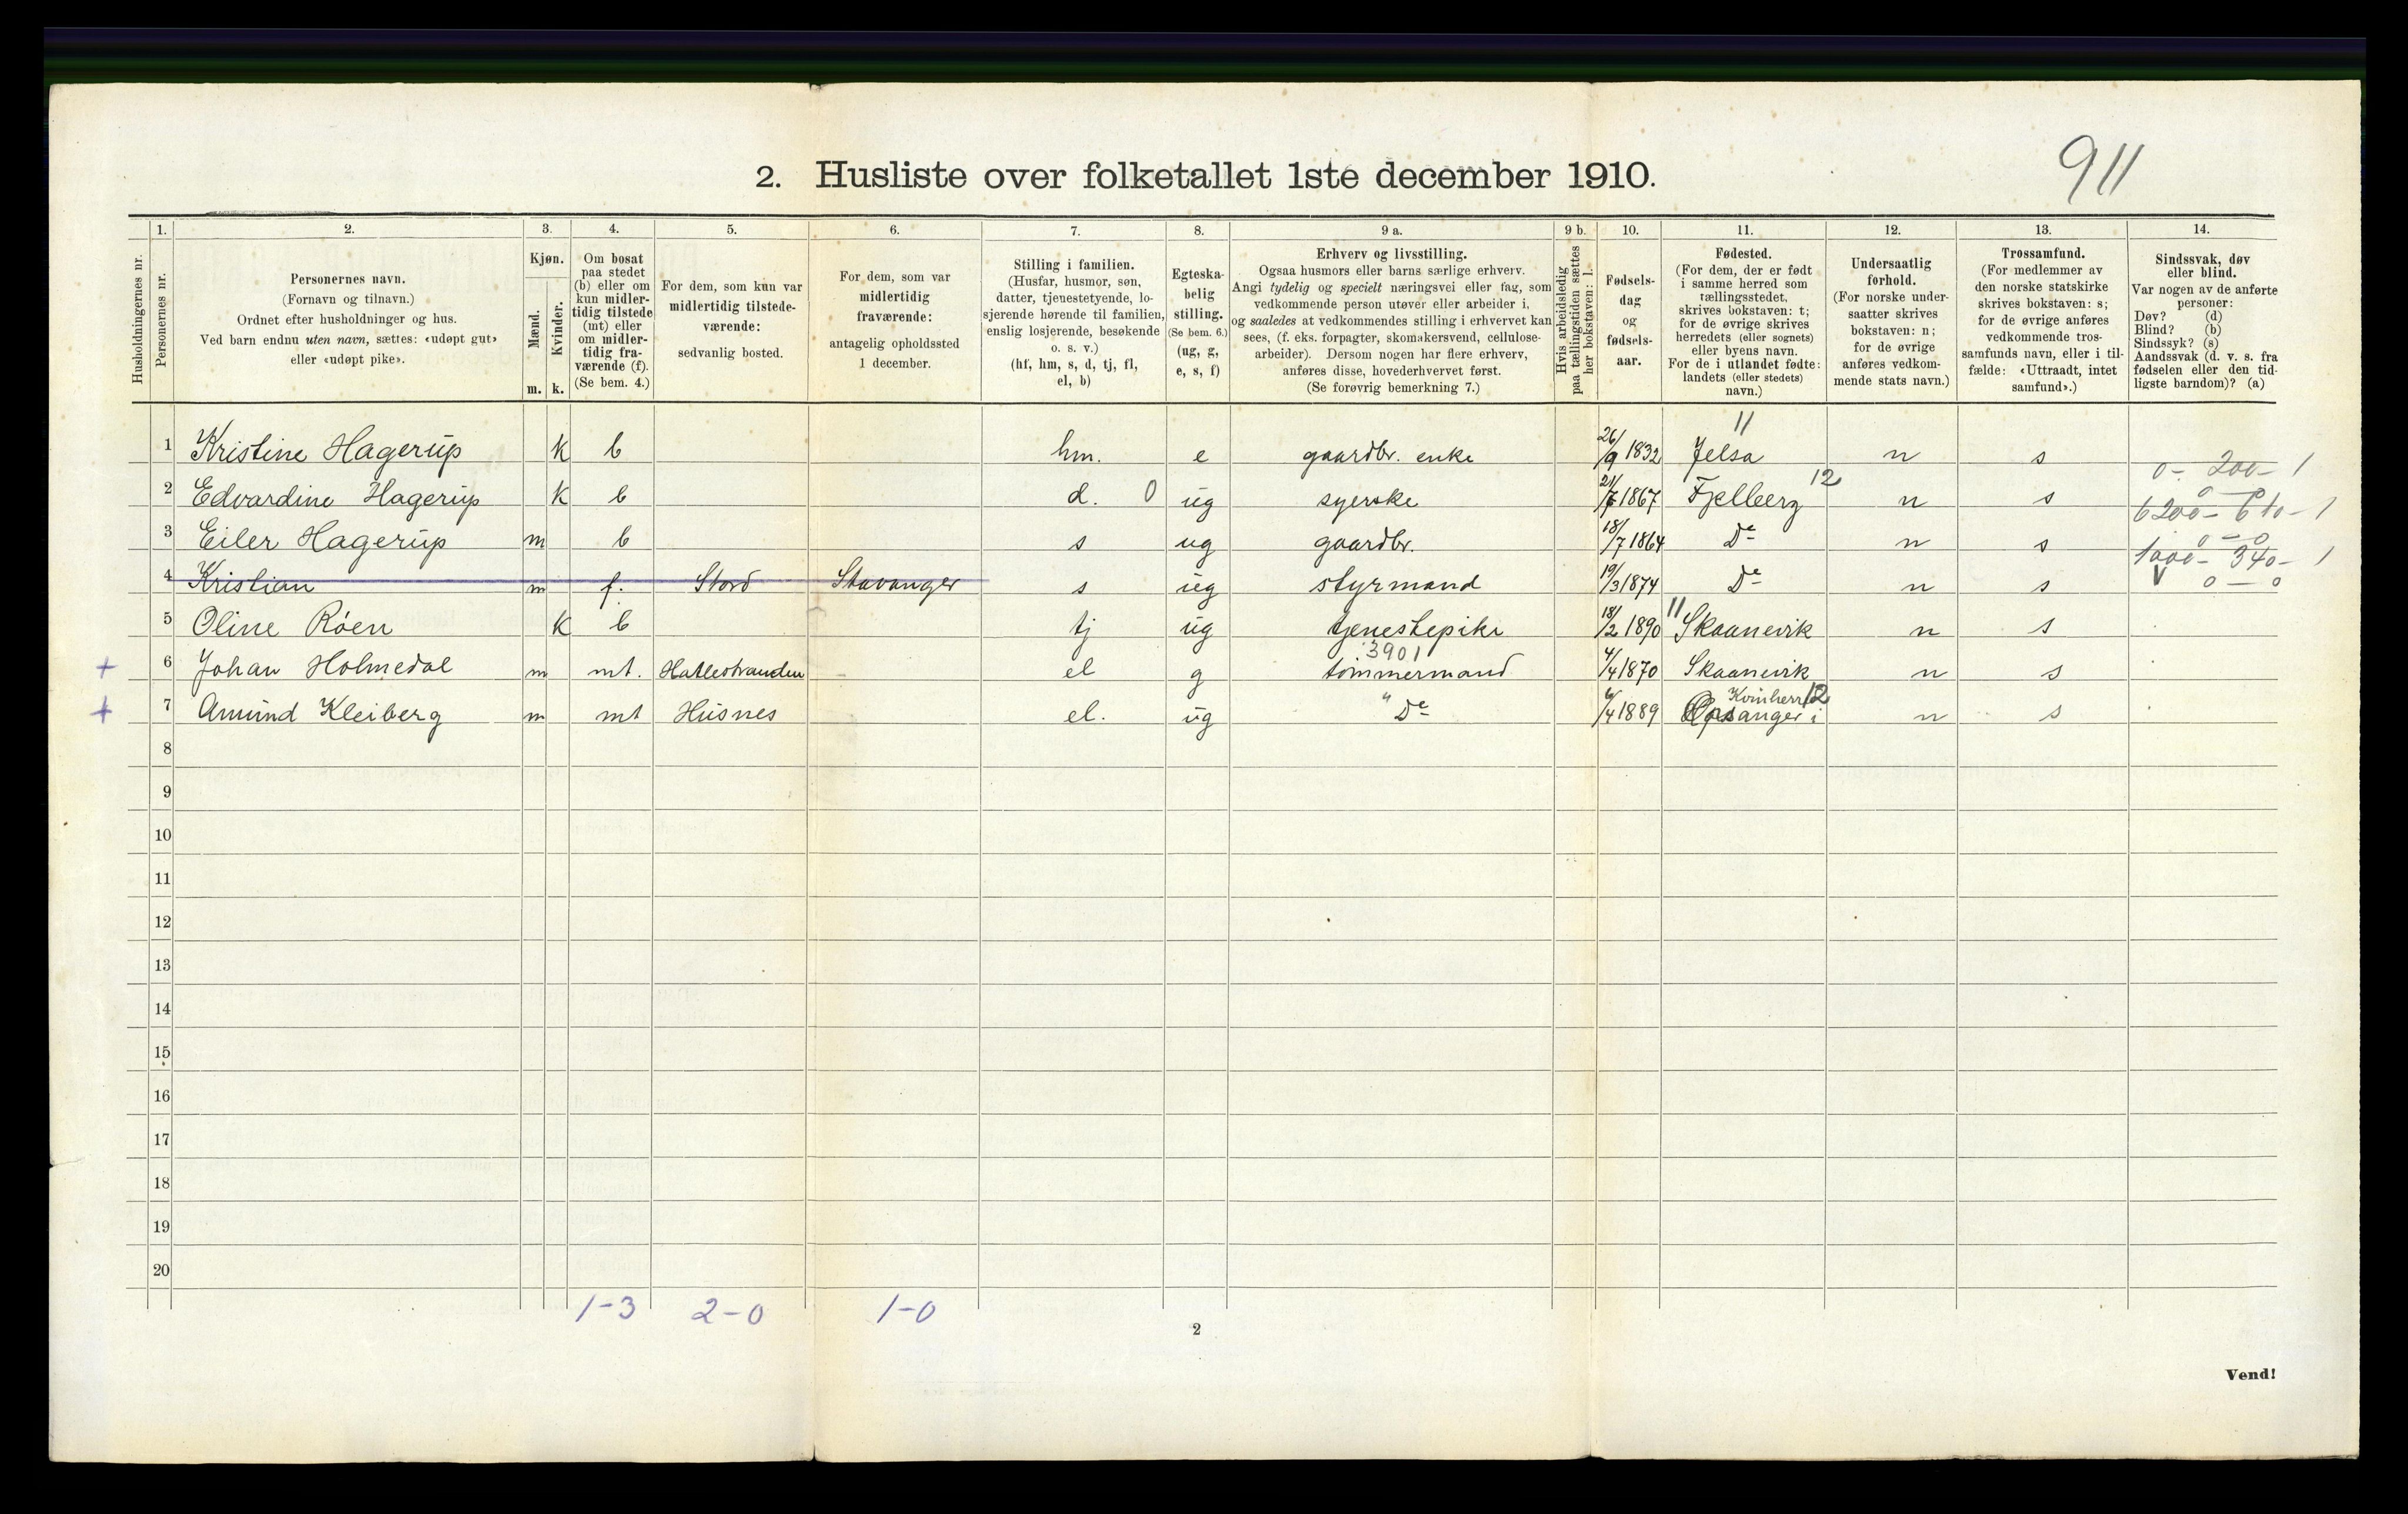 911
2. Husliste over folketallet 1ste december 1910.
1. 2. 3. 4. 5. 6. 7. 8. 9 a. 9 b. 10. 11. 12. 13. 14.
Husholdningernes nr.
Personernes nr.
Personernes navn.
(Fornavn og tilnavn.)
Ordnet efter husholdninger og hus.
Ved barn endnu uten navn, sættes: «udøpt gut»
eller «udøpt pike».
Kjøn.
Mænd.
Kvinder.
m. k.
Om bosat
paa stedet
(b) eller om
kun midler-
tidig tilstede
(mt) eller
om midler-
tidig fra-
værende (f).
(Se bem. 4.)
For dem, som kun var
midlertidig tilstede-
værende:
sedvanlig bosted.
For dem, som var
midlertidig
fraværende:
antagelig opholdssted
1 december.
Stilling i familien.
(Husfar, husmor, søn,
datter, tjenestetyende, lo-
sjerende hørende til familien,
enslig losjerende, besøkende
o. s. v.)
(hf, hm, s, d, tj, fl,
el, b)
Egteska-
belig
stilling.
(Se bem. 6.)
(ug, g,
e, s, f)
Erhverv og livsstilling.
Ogsaa husmors eller barns særlige erhverv.
Angi tydelig og specielt næringsvei eller fag, som
vedkommende person utøver eller arbeider i,
og saaledes at vedkommendes stilling i erhvervet kan
sees, (f. eks. forpagter, skomakersvend, cellulose-
arbeider). Dersom nogen har flere erhverv,
anføres disse, hovederhvervet først.
(Se forøvrig bemerkning 7.)
Hvis arbeidsledig
paa tællingstiden sættes
her bokstaven: l.
Fødsels-
dag
og
fødsels-
aar.
Fødested.
(For dem, der er født
i samme herred som
tællingsstedet,
skrives bokstaven: t;
for de øvrige skrives
herredets (eller sognets)
eller byens navn.
For de i utlandet fødte:
landets (eller stedets)
navn.)
Undersaatlig
forhold.
(For norske under-
saatter skrives
bokstaven: n;
for de øvrige
anføres vedkom-
mende stats navn.)
Trossamfund.
(For medlemmer av
den norske statskirke
skrives bokstaven: s;
for de øvrige anføres
vedkommende tros-
samfunds navn, eller i til-
fælde: «Uttraadt, intet
samfund».)
Sindssvak, døv
eller blind.
Var nogen av de anførte
personer:
Døv? (d)
Blind? (b)
Sindssyk? (s)
Aandssvak (d. v. s. fra
fødselen eller den tid-
ligste barndom)? (a)
11
1 Kristine Hagerup k b hm. e gaardbr. enke 26/9 1832 Jelsa n s
0 - 200 - 1
2 Edvardine Hagerup k b d. 0 ug syerske 1867 Fjelberg 12 n s 0 - 0
6200 - 640 - 1
3 Eiler Hagerup m b s ug gaardbr. 18/7 1864 De n s 0 - 0
1000 - 340 - 1
4 Kristian m f. Stord Stavanger s ug styrmand 19/3 1874 De n s V 0 - 0
5 Oline Röen k b tj ug tjenestepike 18/2 1890 11 Skaanevik n s
3901
+ 6 Johan Holmedal m mt. Hatlestranden el g tömmermand 4/4 1870 Skaanevik n s
Kvinherr 12
+ 7 Amund Kleiberg m mt Husnes el. ug " De 6/4 1889 i n s
8
9
10
11
12
13
14
15
16
17
18
19
20
1-3 2-0 1-0
2
Vend!